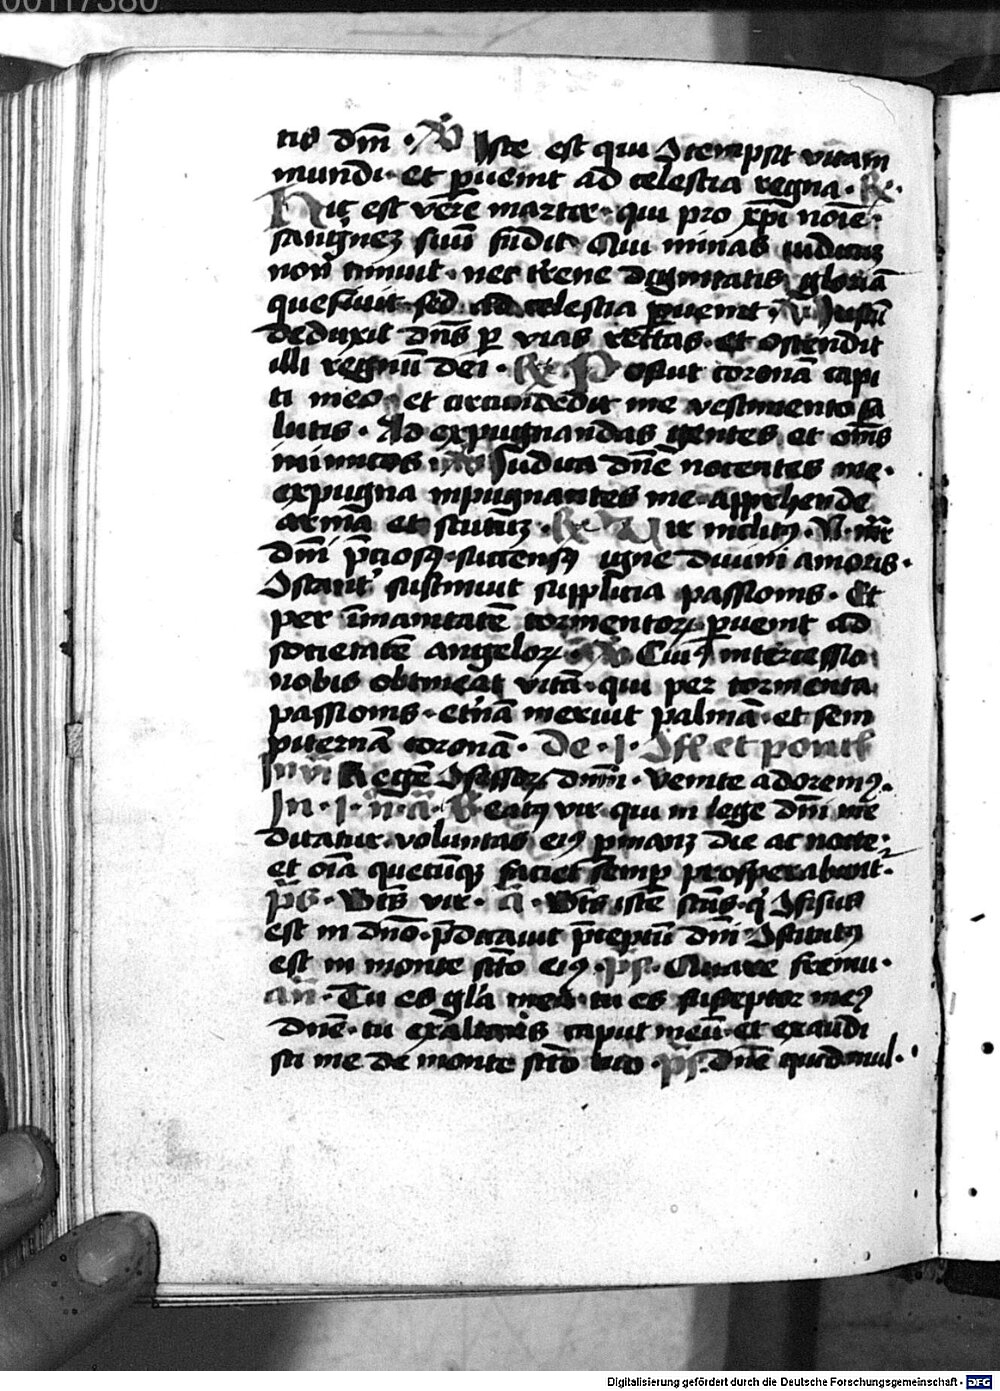 00117380
tis dm̄ · V̄ Iste est qui ꝯtempsit vitam
mundi · et ꝑuenit ad celestia regna · R̸ ·
Hic est vere martir · qui pro xpi noīe ·
sanguineʒ suū fudit Qui minas iudicuʒ
non timuit · nec terrene dignitatis gloriā
quesiuit · sed ad celestia ꝑuenit · V̄ Iustū
deduxit dn̄s ꝑ vias rectas · et ostendit
illi regnū dei · R̸ Posuit coronā capi
ti meo · et circumdedit me vestimento sa
lutis · Ad expugnandas gentes et om̄s
inimicos V̄ Iudica dn̄e nocentes me ·
expugna inpugnantes me · apprehende
arma et scutuʒ · R̸ Vir inclitꝰ · N · mr̄
dm̄i p̄ciosꝰ · succensꝰ igne diuini amoris ·
ꝯstant' sustinuit supplicia passionis · Et
per īmanitatē tormentoꝝ ꝑuenit ad
societatē angeloꝝ V̄ Cuiꝰ intercessio
nobis obtineat vitā · qui per tormenta
passionis · et'nā meruit palmā · et sem
piternā coronā · De · i · ꝯff et pontif
Inui Regē ꝯfessoꝝ dnm̄ · venite adoremꝰ ·
In · i · n̄ · a · Beatꝰ vir · qui in lege dm̄i me
ditatur · voluntas eiꝰ ꝑmanʒ die ac nocte ·
et oīa quecūqʒ faciet semꝑ prosperabunt'
p̄s · Bt̄s vir · a · Bt̄s iste sc̄s · q̄ ꝯfisus
est in dn̄o · p̄dicauit p̄ceptū dn̄i ꝯstitutꝰ
est in monte sc̄to eiꝰ · ps · Quare fremu ·
an̄ · Tu es gl̄a mea · tu es susceptor meꝰ
dn̄e · tu exaltans caput meū · et exaudi
sti me de monte sc̄to tuo · p̄s · Dn̄e quid mul ·
Digitalisierung gefördert durch die Deutsche Forschungsgemeinschaft - DFG